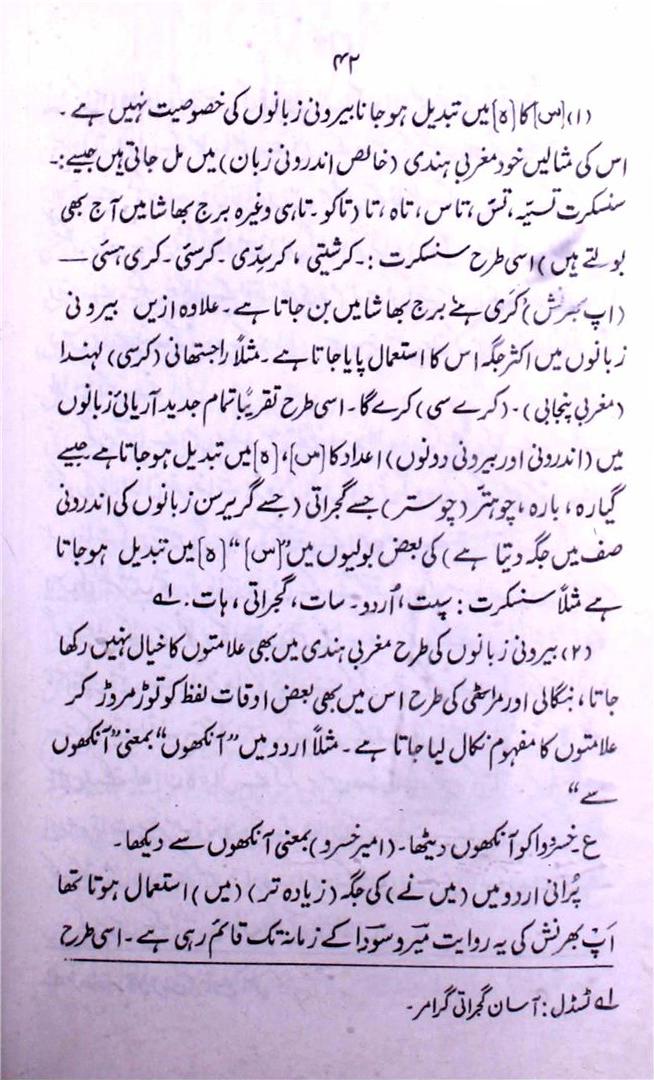 ۴۲
(۱) [س] کا [ہ] میں تبدیل ہو جانا بیرونی زبانوں کی خصوصیت نہیں ہے ۔
اس کی مثالیں خود مغربی ہندی (خالص اندرونی زبان) میں مل جاتی ہیں جیسے :۔
سنسکرت تسیہ ، تسّ ، تاس ، تاہ ، تا (تا کو ۔ تاہی وغیرہ برج بھاشا میں آج بھی
بولتے ہیں) اسی طرح سنسکرت :۔ کرشیتی ، کرسِدّی ۔ کرسئی ۔ کری ہسئی —
(اپ بھرنش) کَرَی ہئے برج بھاشا میں بن جاتا ہے ۔ علاوہ ازیں بیرونی
زبانوں میں اکثر جگہ اس کا استعمال پایا جاتا ہے ۔ مثلاً راجستھانی (کرسی) لہندا
(مغربی پنجابی) ۔ (کرے سی) کرے گا ۔ اسی طرح تقریباً تمام جدید آریائی زبانوں
میں (اندرونی اور بیرونی دونوں) اعداد کا [س] ، [ہ] میں تبدیل ہو جاتا ہے جیسے
گیارہ ، بارہ ، چوہتّر (چوستر) جسے گجراتی (جسے گریرسن زبانوں کی اندرونی
صف میں جگہ دیتا ہے) کی بعض بولیوں میں "[س]" [ہ] میں تبدیل ہو جاتا
ہے مثلاً سنسکرت : سپت ، اُردو ۔ سات ، گجراتی ، ہات ۔ ۱؎
(۲) بیرونی زبانوں کی طرح مغربی ہندی میں بھی علامتوں کا خیال نہیں رکھا
جاتا ، بنگالی اور مراٹھی کی طرح اس میں بھی بعض اوقات لفظ کو توڑ مروڑ کر
علامتوں کا مفہوم نکال لیا جاتا ہے ۔ مثلاً اردو میں "آنکھوں" بمعنی "آنکھوں
سے"
ع ۔ خسروا کو آنکھوں دیٹھا ۔ (امیر خسرو) بمعنی آنکھوں سے دیکھا ۔
پُرانی اردو میں (میں نے) کی جگہ (زیادہ تر) (میں) استعمال ہوتا تھا
اَپ بھرنش کی یہ روایت میرؔ و سوداؔ کے زمانہ تک قائم رہی ہے ۔ اسی طرح
۱؎ ٹسڈل : آسان گجراتی گرامر ۔